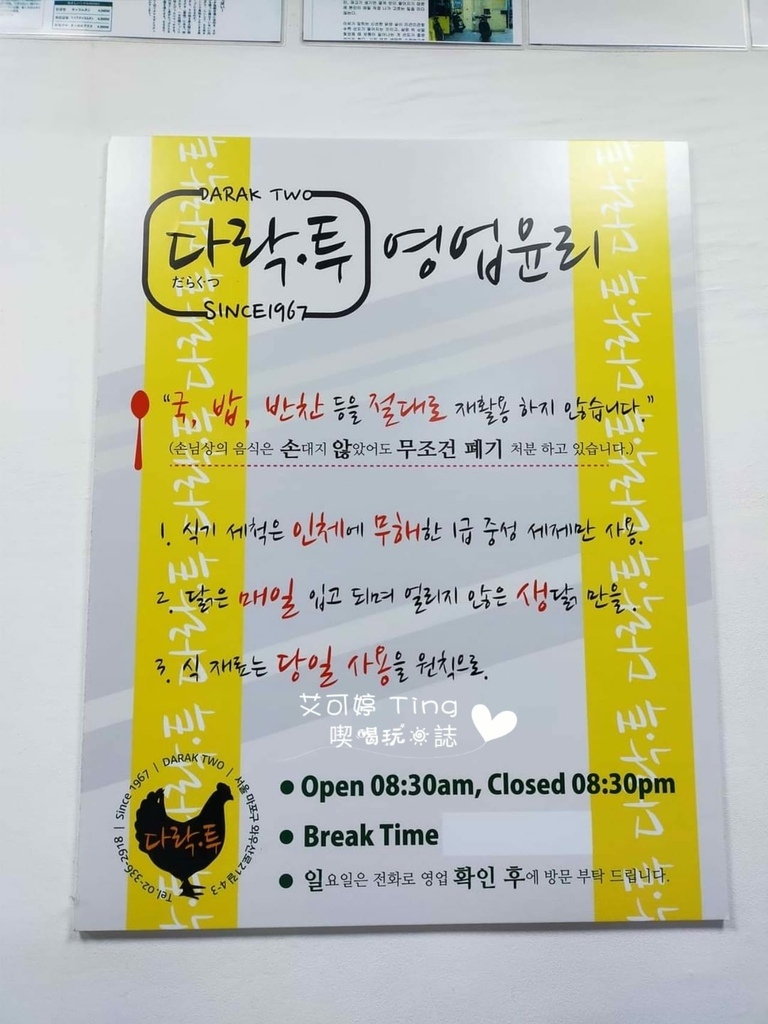 DARAK TWO
다락.투
だらくつ
SINCE1967
영업윤리
"국, 밥, 반찬 등을 절대로 재활용 하지 않습니다."
(손님상의 음식은 손대지 않았어도 무조건 폐기 처분 하고 있습니다.)
1. 식기 세척은 인체에 무해한 1급 중성 세제만 사용.
2. 닭은 매일 입고 되며 얼리지 않은 생닭 만을.
3. 식 재료는 당일 사용을 원칙으로.
艾可婷 Ting
喫喝玩誌
Since 1967 | DARAK TWO | 서울 마포구 와우산로21길 4-3
Tel.02-336-2918
다락.투
● Open 08:30am, Closed 08:30pm
● Break Time
● 일요일은 전화로 영업 확인 후에 방문 부탁 드립니다.
다락.투 다락.투 다락.투 다락.투
다락.투 다락.투 다락.투 다락.투